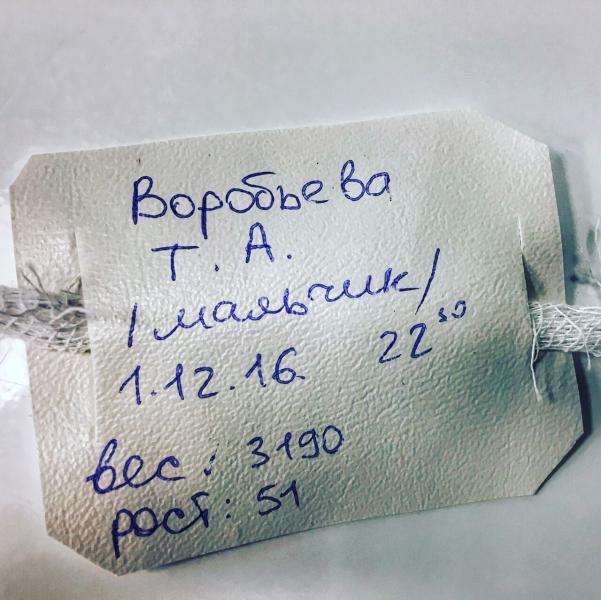 Воробьева
Т. А.
/мальчик/
1.12.16 22³⁰
вес: 3190
рост: 51